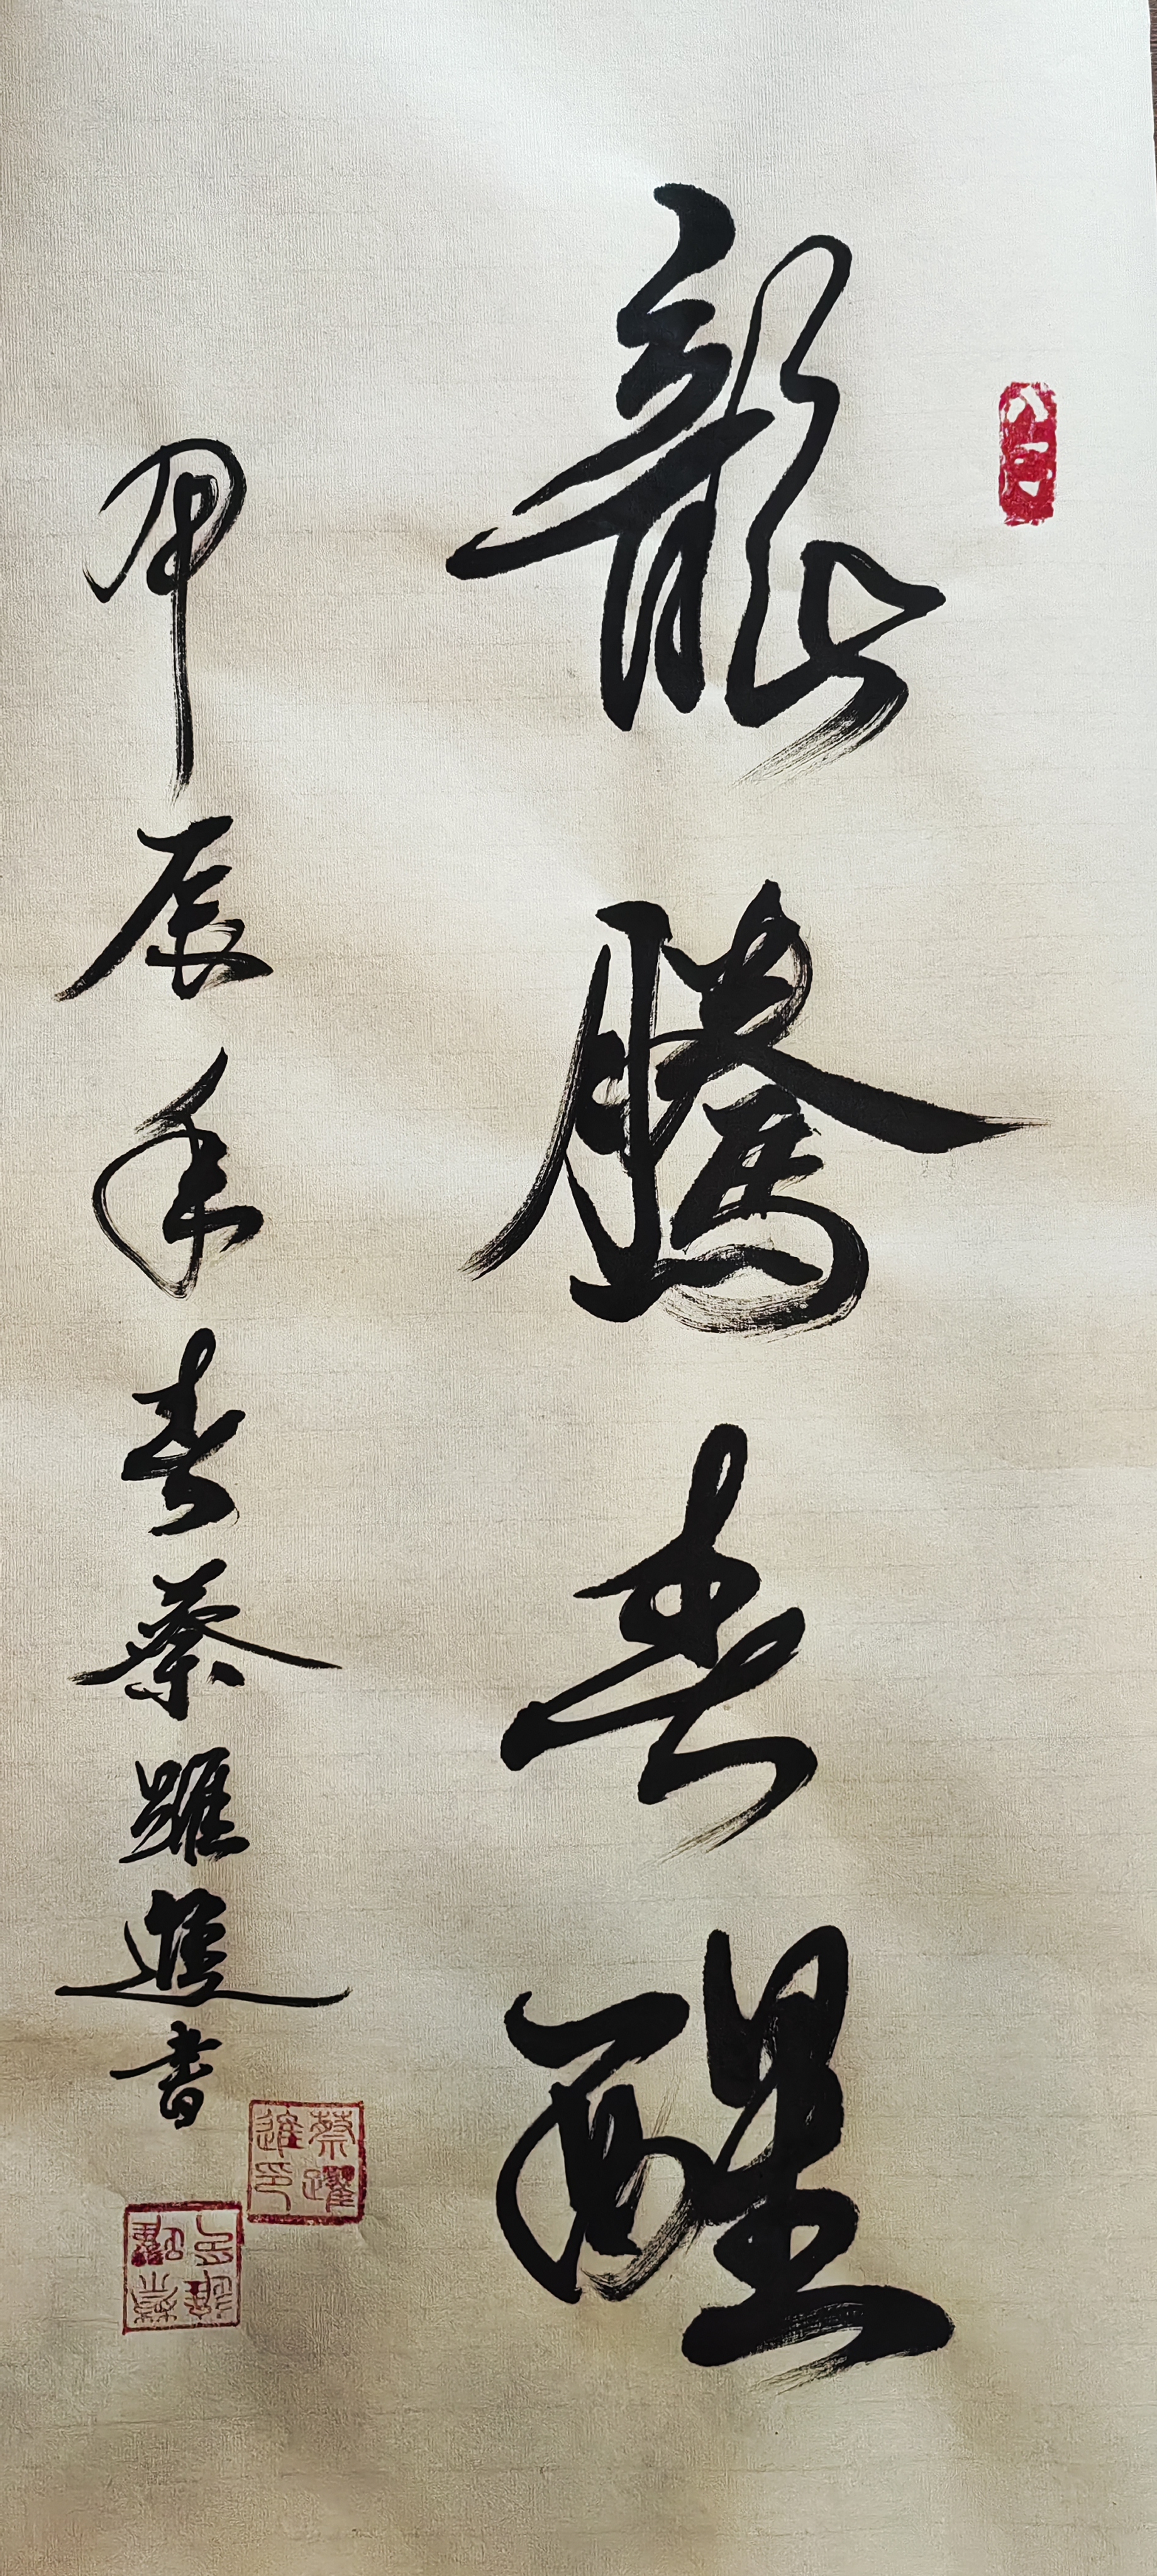 龍騰春醒
甲辰年春蔡躍進書
蔡躍進印